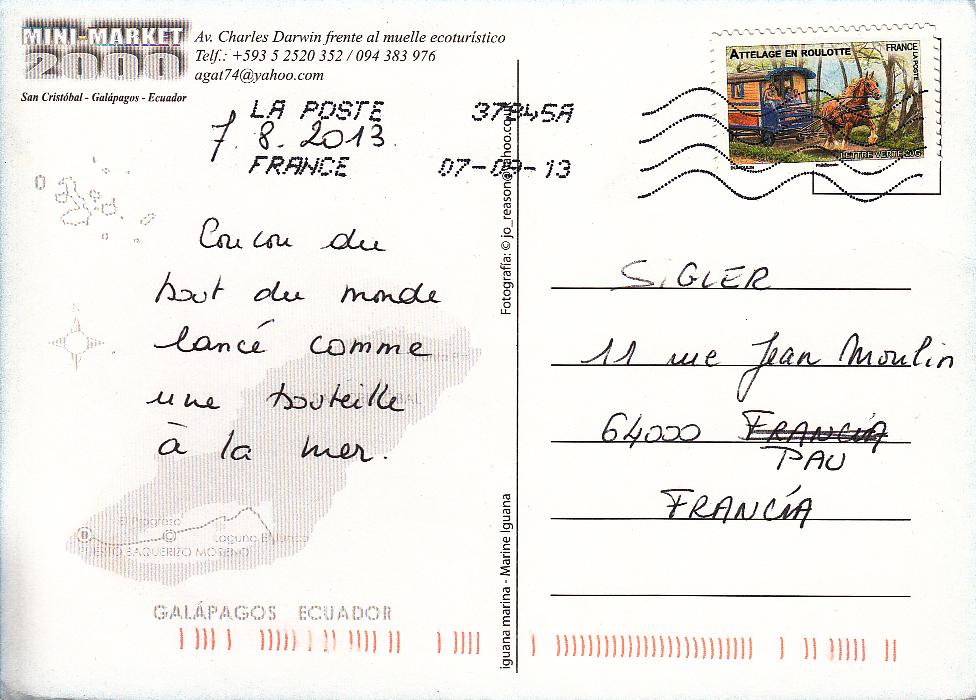 MINI-MARKET
2000
Av. Charles Darwin frente al muelle ecoturístico
Telf.: +593 5 2520 352 / 094 383 976
agat74@yahoo.com
San Cristóbal - Galápagos - Ecuador
LA POSTE 37845A
7.8.2013.
FRANCE 07-08-13
ATTELAGE EN ROULOTTE
FRANCE
LA POSTE
LETTRE VERTE 20G
Coucou du
bout du monde
lancé comme
une bouteille
à la mer.
El Progreso
PUERTO BAQUERIZO MORENO
GALÁPAGOS ECUADOR
Fotografía: © jo_reason@yahoo.com
iguana marina - Marine Iguana
SIGLER
11 rue Jean Moulin
64000 FRANCIA
PAU
FRANCÍA